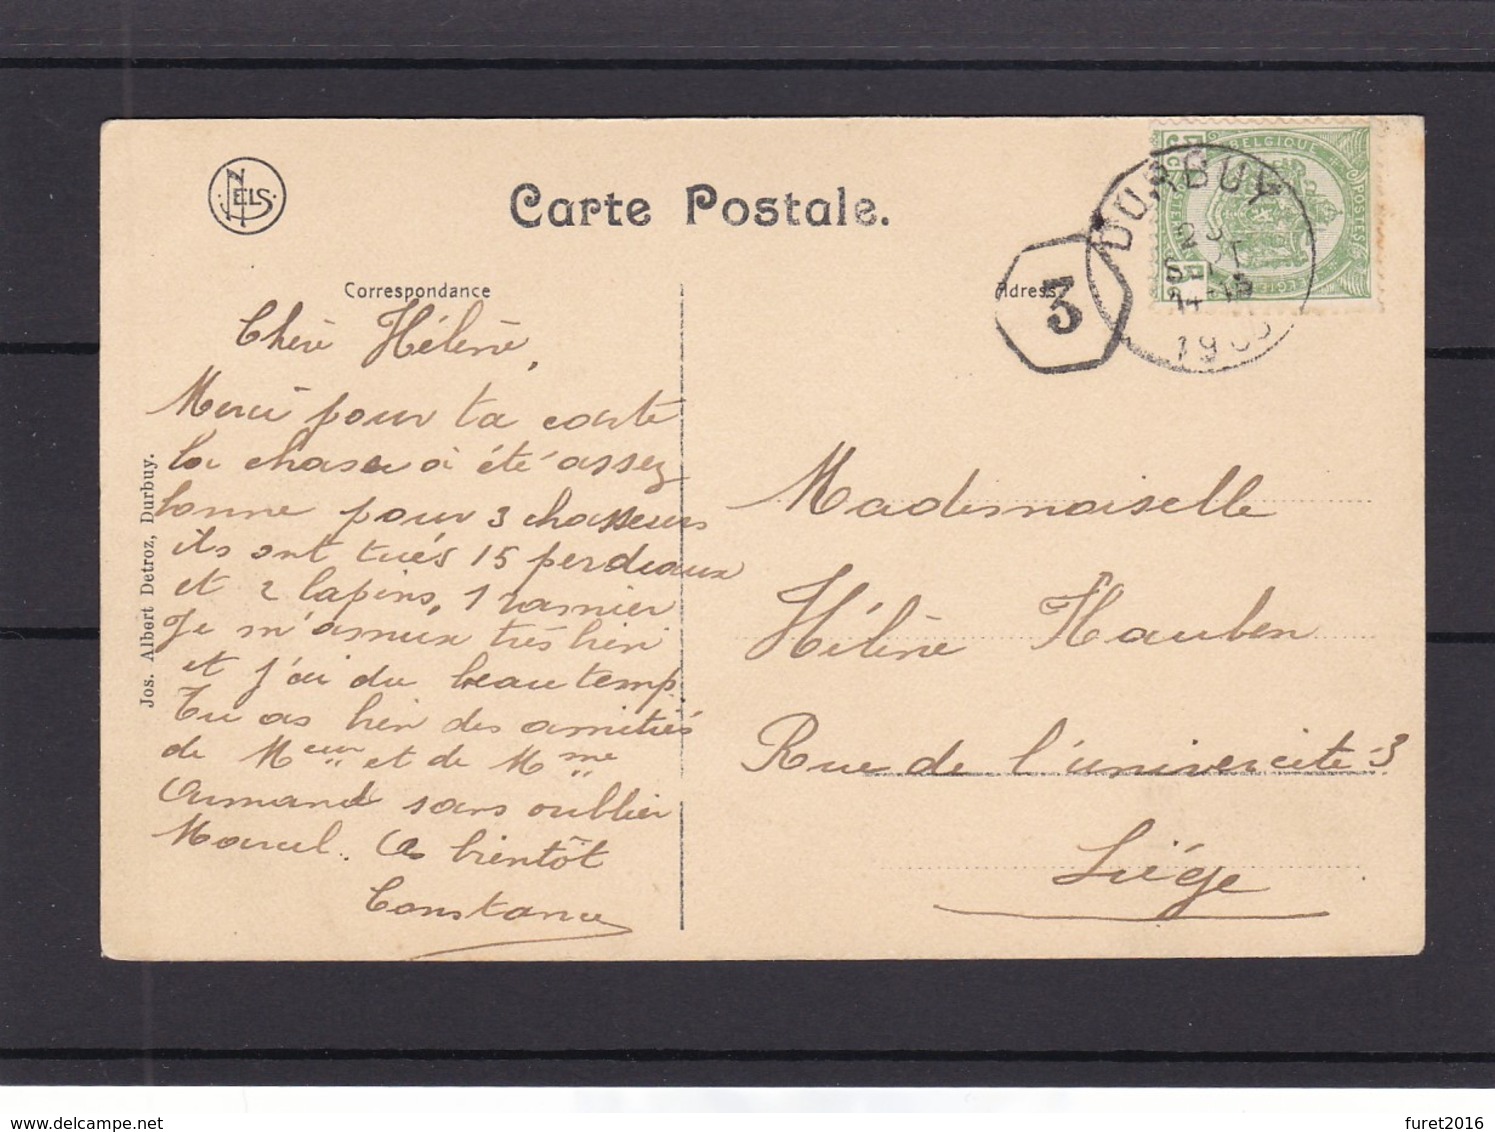 NELS
Carte Postale.
Correspondance
Chère Hélène,
Merci pour ta carte
la chasse à été assez
bonne pour 3 chasseurs
ils ont tués 15 perdreaux
et 2 lapins, 1 ramier
Je m'amuse très bien
et j'ai du beau temp.
Tu as bien des amitiés
de Meur et de Mme
Armand sans oublier
Marcel. A bientôt
Constance
Jos. Albert Detroz, Durbuy.
Adresse
3
DURBUY
SEPT
14-15
BELGIQUE
POSTES
Mademoiselle
Hélène Hauben
Rue de l'univercité 3
Liége
delcampe.net
furet2016